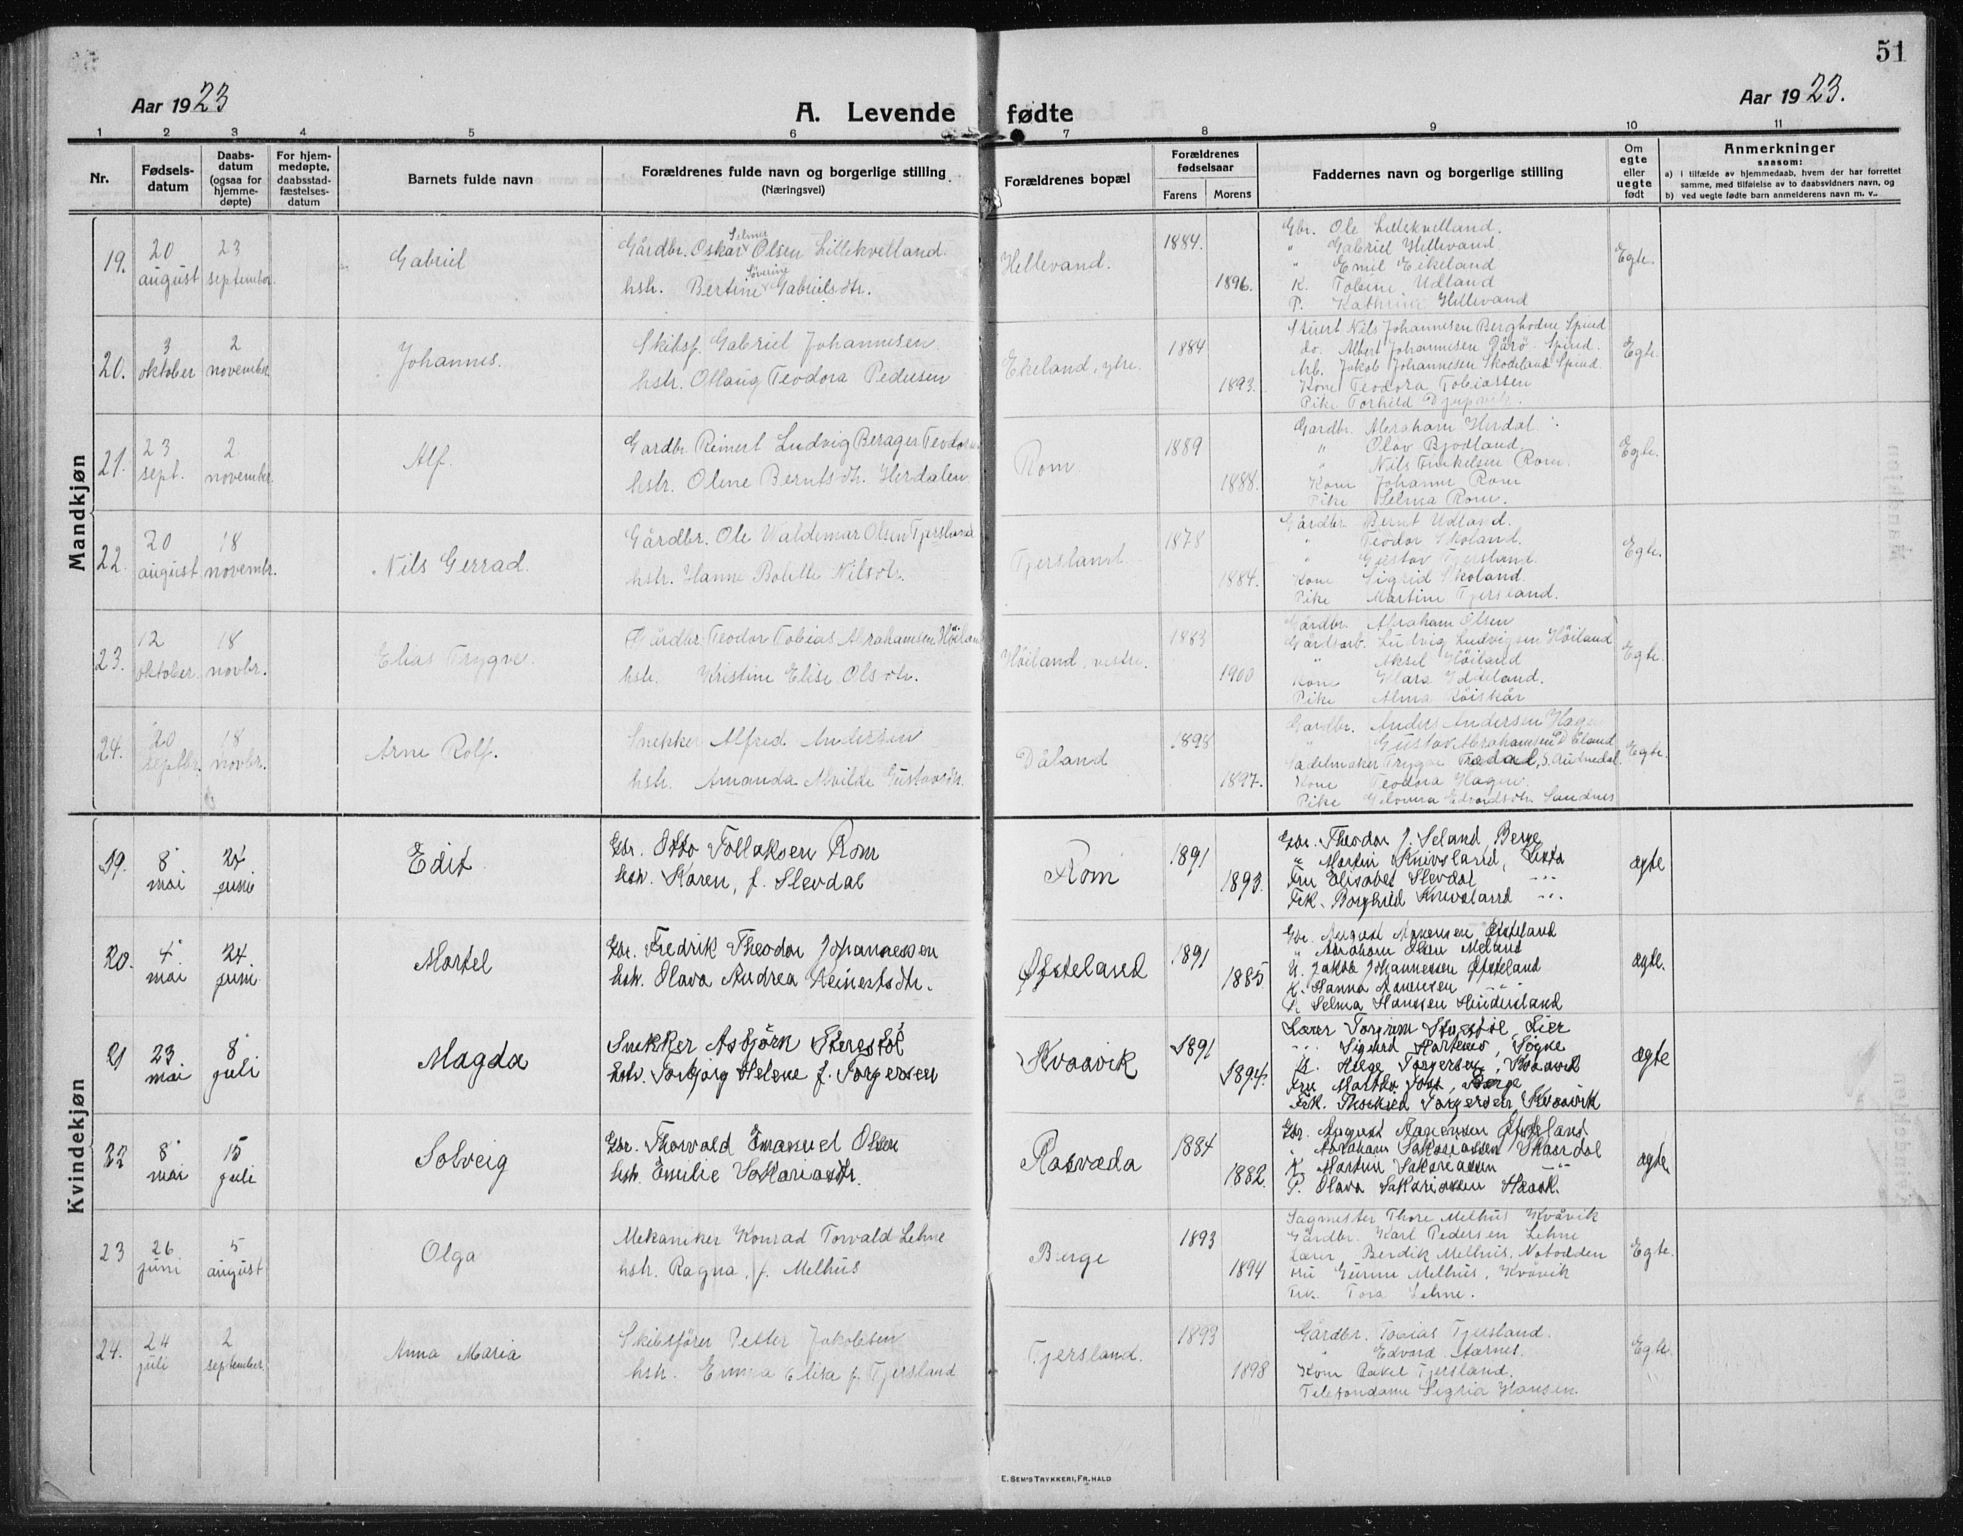 51
Aar 1923
A. Levende fødte
Aar 1923.
1 2 3 4 5 6 7 8 9 10 11
Nr.
Fødsels-
datum
Daabs-
datum
(ogsaa for
hjemme-
døpte)
For hjem-
medøpte,
daabsstad-
fæstelses-
datum
Barnets fulde navn
Forældrenes fulde navn og borgerlige stilling
(Næringsvei)
Forældrenes bopæl
Forældrenes
fødselsaar
Farens Morens
Faddernes navn og borgerlige stilling
Om
egte
eller
uegte
født
Anmerkninger
saasom:
a) i tilfælde av hjemmedaab, hvem der har forrettet
samme, med tilføielse av to daabsvidners navn, og
b) ved uegte fødte barn anmelderens navn m. v..
Mandkjøn
19. 20 august 23 september Gabriel
Gårdbr. Oskar Selmer Olsen Lillekvelland.
hstr. Bertine Severine Gabrielsdtr.
Hellevand. 1884. 1896.
Gbr. Ole Lillekvelland.
" Gabriel Hellevand.
" Emil Eikeland
K. Tobine Udland
P. Kathrine Hellevand
Egte.
20. 3 oktober 2 november Johannes.
Skibsf. Gabriel Johannesen.
hstr. Ollaug Teodora Pedersen
Ekeland, ytre. 1884 1893.
Nils Johannesen Berghodne Spind
do. Albert Johannesen Dårø Spind.
Jakob Johannesen Skodeland Spind.
Kone Teodora Tobiassen
Pike Torhild Djupvik.
Egte.
21. 23 sept. 2 november Alf.
Gardbr. Reinert Ludvig Berager
hstr. Olene Berntsdtr. Herdalen.
Rom. 1889 1888.
Gardbr. Abraham Herdal
" Olav Bjodland
" Nils Rom.
Kone Johanne Rom
Pike Selma Rom.
Egte.
22. 20 august 18 novembr. Nils Gerrad.
Gårdbr. Ole Waldemar Olsen Tjersland
hstr. Hanne Bolette Nilsdtr.
Tjersland 1878 1884.
Gårdbr. Bernt Udland.
" Teodor Skoland.
" Gustav Tjersland.
Kone Sigrid Skoland.
Pike Martine Tjersland.
Egte.
23. 12 oktober 18 novbr. Elias Trygve.
Gårdbr. Teodor Tobias Abrahamsen Höiland
hstr. Kristine Elise Olsdtr.
Höiland, vestre. 1883 1900
Gårdbr. Abraham Olsen
Gårdsarb. Ludvig Ludvigsen Höiland
" Aksel Höiland
Kone Klara
Pike Alma Röiskår
Egte.
24. 20 septbr. 18 novbr. Arne Rolf.
Snekker Alfred Andersen
hstr. Amanda Alvilde Gustavsdtr.
Dåland 1898 1897.
Gardbr. Anders Andersen Hagen
" Gustav Abrahamsen Dåland
Sadelmaker Trygve S. Audnedal
Kone Teodora Hagen
Pike Edvardsdtr. Sandnes
Egte.
Kvindekjøn
19. 8 mai 24 juni Edit.
Gbr. Otto Tollaksen Rom
hstr. Karen, f. Slevdal
Rom 1891 1893.
Gbr. Theodor J. Seland Berge
" Martin Knivsland, Lista
Fru Elisabet Slevdal "
Frk. Borghild Knivsland "
ægte
20. 4 mai 24. juni. Martel
Gbr. Fredrik Theodor Johannessen
hstr. Olava Andrea Reinertsdtr.
Øfsteland 1891 1885
Gbr. August Øfsteland
" Abraham Olsen Meland
U. Jakob Johannessen Øfsteland
K. Hanna
P. Selma Hanssen Hindersland
ægte.
21 23 mai 8 juli Magda
Snekker Asbjörn Sterestöl
hstr. Torbjörg Helene f. Torgersen
Kvaavik 1891 1894.
Lærer Torgrim Lier
" Sigurd Søgne
U. Helge Torgersen, Kvaavik
Fru Martha Berge
Frk. Torgersen, Kvaavik
ægte
22 8 mai 15 juli Solveig
Gbr. Thorvald Emanuel Olsen
hstr. Emilie Sakariasdtr.
Rosvæda 1884 1882.
Gbr. August Øfsteland
" Abraham Sakariassen Skaardal
K. Martine Sakariassen "
P. Olava Sakariassen
ægte
23 26. juni 5 august Olga
Mekaniker Konrad Torvald Lehne
hstr. Ragna, f. Melhus
Berge 1893 1894
Sagmester Thore Melhus Kvåvik
Gårdbr. Karl Pedersen Lehne
Lærer Berdik Melhus, Notodden
Fru Gunne Melhus, Kvåvik
Frk. Tora Lehne.
Egte.
24. 24 juli 2 september Anna Maria
Skibsfører Petter Jakobsen
hstr. Emma Elisa f. Tjersland
Tjersland. 1893 1898
Gårdbr. Tobias Tjersland.
" Edvard Aarnes.
Kone Rakel Tjersland.
Telefondame Sigria Hansen.
Egte.
E. SEM'S TRYKKERI, FR. HALD